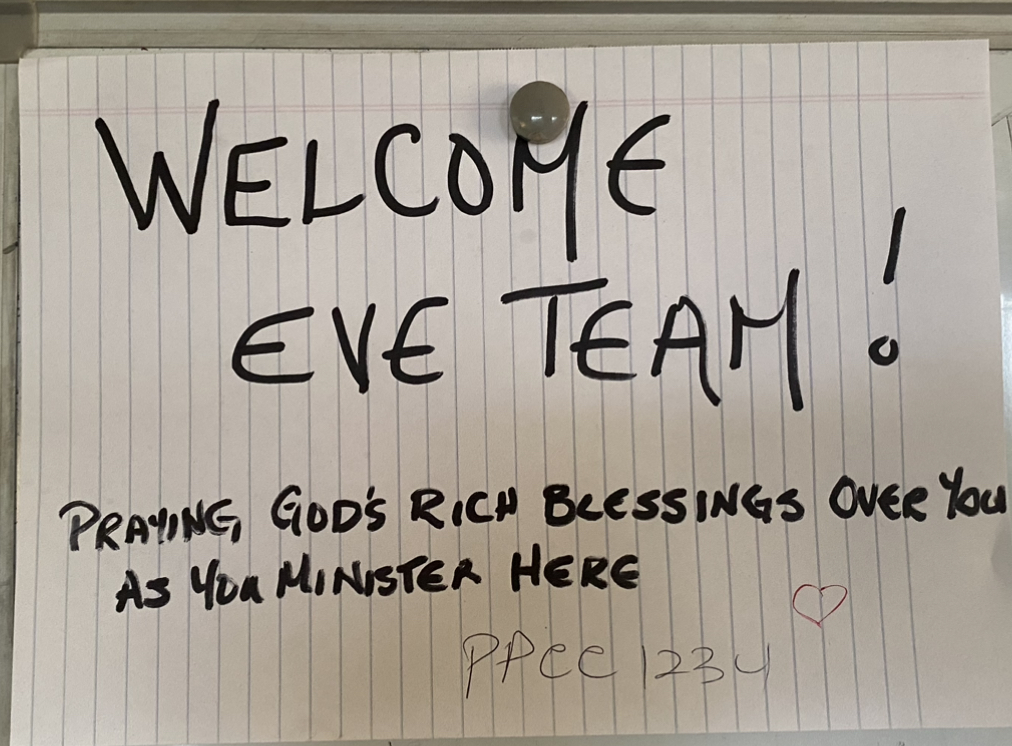 WELCOME
EVE TEAM!
PRAYING GOD'S RICH BLESSINGS OVER YOU
AS YOU MINISTER HERE
PPCC 1234